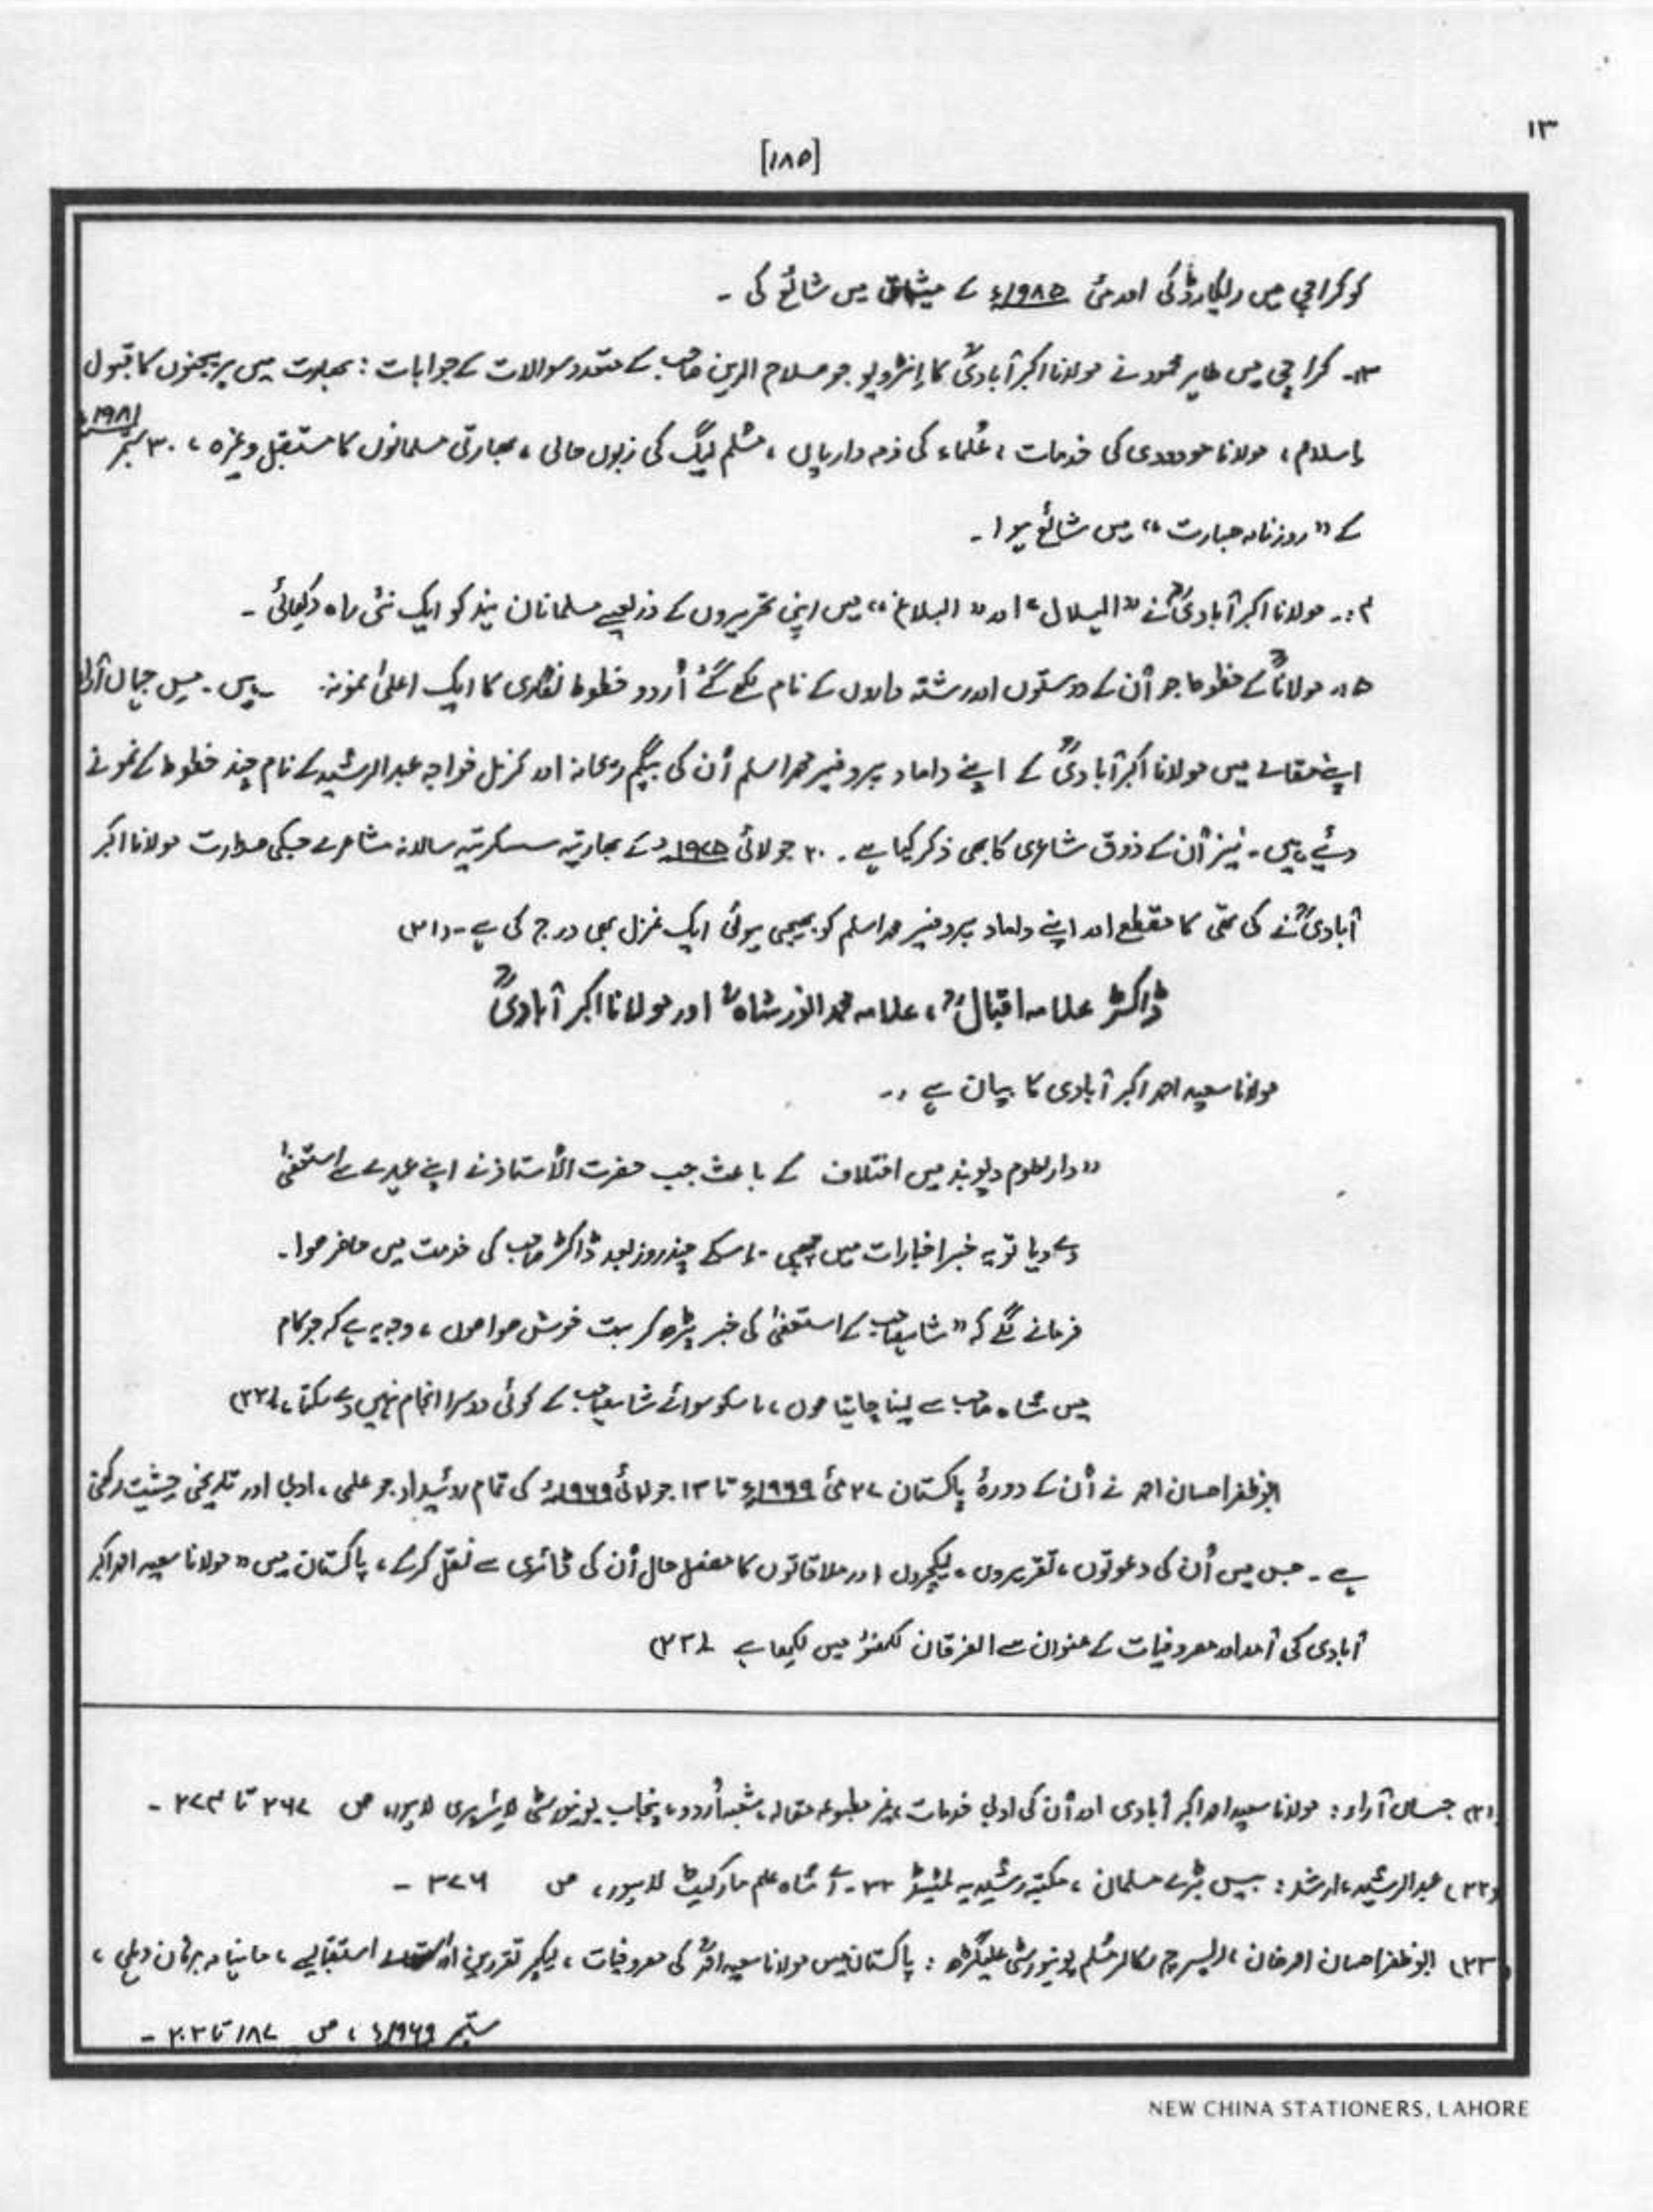 ۱۳
[۱۸۵]
کو کراچی میں ریکارڈ کی اور مئی ۱۹۸۵ء کے میثاق میں شائع کی ۔
۳۔ کراچی میں طاہر محمود نے مولانا اکبر آبادیؒ کا اِنٹرویو جو صلاح الدین صاحب کے متعدد سوالات کے جوابات : بھارت میں ہریجنوں کا قبول
اِسلام ، مولانا مودودی کی خدمات ، عُلماء کی ذمہ داریاں ، مُسلم لیگ کی زبوں حالی ، بھارتی مسلمانوں کا مستقبل وغیرہ ، ۳۰ ستمبر ۱۹۸۱ء
کے "روزنامہ جسارت" میں شائع ہوا ۔
۴:۔ مولانا اکبر آبادیؒ نے "الہلال" اور "البلاغ" میں اپنی تحریروں کے ذریعے مسلمانان ہند کو ایک نئی راہ دکھائی ۔
۵:۔ مولاناؒ کے خطوط جو اُن کے دوستوں اور رشتہ داروں کے نام لکھے گئے اُردو خطوط نگاری کا ایک اعلیٰ نمونہ ہیں ۔ مس جہاں آراء
اپنے مقالے میں مولانا اکبر آبادیؒ کے اپنے داماد پروفیسر محمد اسلم اُن کی بیگم ریحانہ اور کرنل خواجہ عبدالرشید کے نام چند خطوط کے نمونے
دئیے ہیں ۔ نیز اُن کے ذوق شاعری کا بھی ذکر کیا ہے ۔ ۲۰ جولائی ۱۹۷۵ء کے بھارتیہ سسکرتیہ سالانہ مشاعرے جسکی صدارت مولانا اکبر
آبادیؒ نے کی تھی کا مقطع اور اپنے داماد پروفیسر محمد اسلم کو بھیجی ہوئی ایک غزل بھی درج کی ہے ۔ (۲۱)
ڈاکٹر علامہ اقبالؒ ، علامہ محمد انور شاہؒ اور مولانا اکبر آبادیؒ
مولانا سعید احمد اکبر آبادی کا بیان ہے :۔
"دارلعلوم دیوبند میں اختلاف کے باعث جب حضرت الأستاذ نے اپنے عہدے سے استعفیٰ
دے دیا تو یہ خبر اخبارات میں چھپی ۔ اسکے چند روز بعد ڈاکٹر صاحب کی خدمت میں حاضر ہوا ۔
فرمانے لگے کہ "شاہصاحب کے استعفیٰ کی خبر پڑھ کر بہت خوش ہوا ہوں ، وجہ یہ ہے کہ جو کام
میں شاہ صاحب سے لینا چاہتا ہوں ، اسکو سوائے شاہصاحب کے کوئی دوسرا انجام نہیں دے سکتا ۔ (۲۲)
ابوظفر احسان احمد نے اُن کے دورۂ پاکستان ۲۷ مئی ۱۹۶۹ء تا ۱۳ جولائی ۱۹۶۹ء کی تمام روئیداد جو علمی ، ادبی اور تاریخی حیثیت رکھتی
ہے ۔ جس میں اُن کی دعوتوں ، تقریروں ، لیکچروں اور ملاقاتوں کا مفصل حال اُن کی ڈائری سے نقل کرکے ، پاکستان میں "مولانا سعید احمد اکبر
آبادی کی آمد اور مصروفیات کے عنوان سے الفرقان لکھنؤ میں لکھا ہے ۔ (۲۳)
(۲۱) جہاں آراء : مولانا سعید احمد اکبر آبادی اور اُن کی ادبی خدمات ، غیر مطبوعہ مقالہ ، شعبہ اُردو ، پنجاب یونیورسٹی لائبریری لاہور ، ص ۲۶۷ تا ۲۷۴ ۔
(۲۲) عبدالرشید ، ارشد : بیس بڑے مسلمان ، مکتبہ رشیدیہ لمیٹڈ ۳۲۔اے شاہ علم مارکیٹ لاہور ، ص ۳۷۶ ۔
(۲۳) ابوظفر احسان احمد خان ، ریسرچ سکالر مُسلم یونیورسٹی علیگڑھ : پاکستان میں مولانا سعید احمدؒ کی مصروفیات ، لیکچر تقریریں اور استقبالیے ، ماہنامہ برہان دہلی ،
ستمبر ۱۹۶۹ء ، ص ۱۸۷ تا ۲۰۲ ۔
NEW CHINA STATIONERS, LAHORE